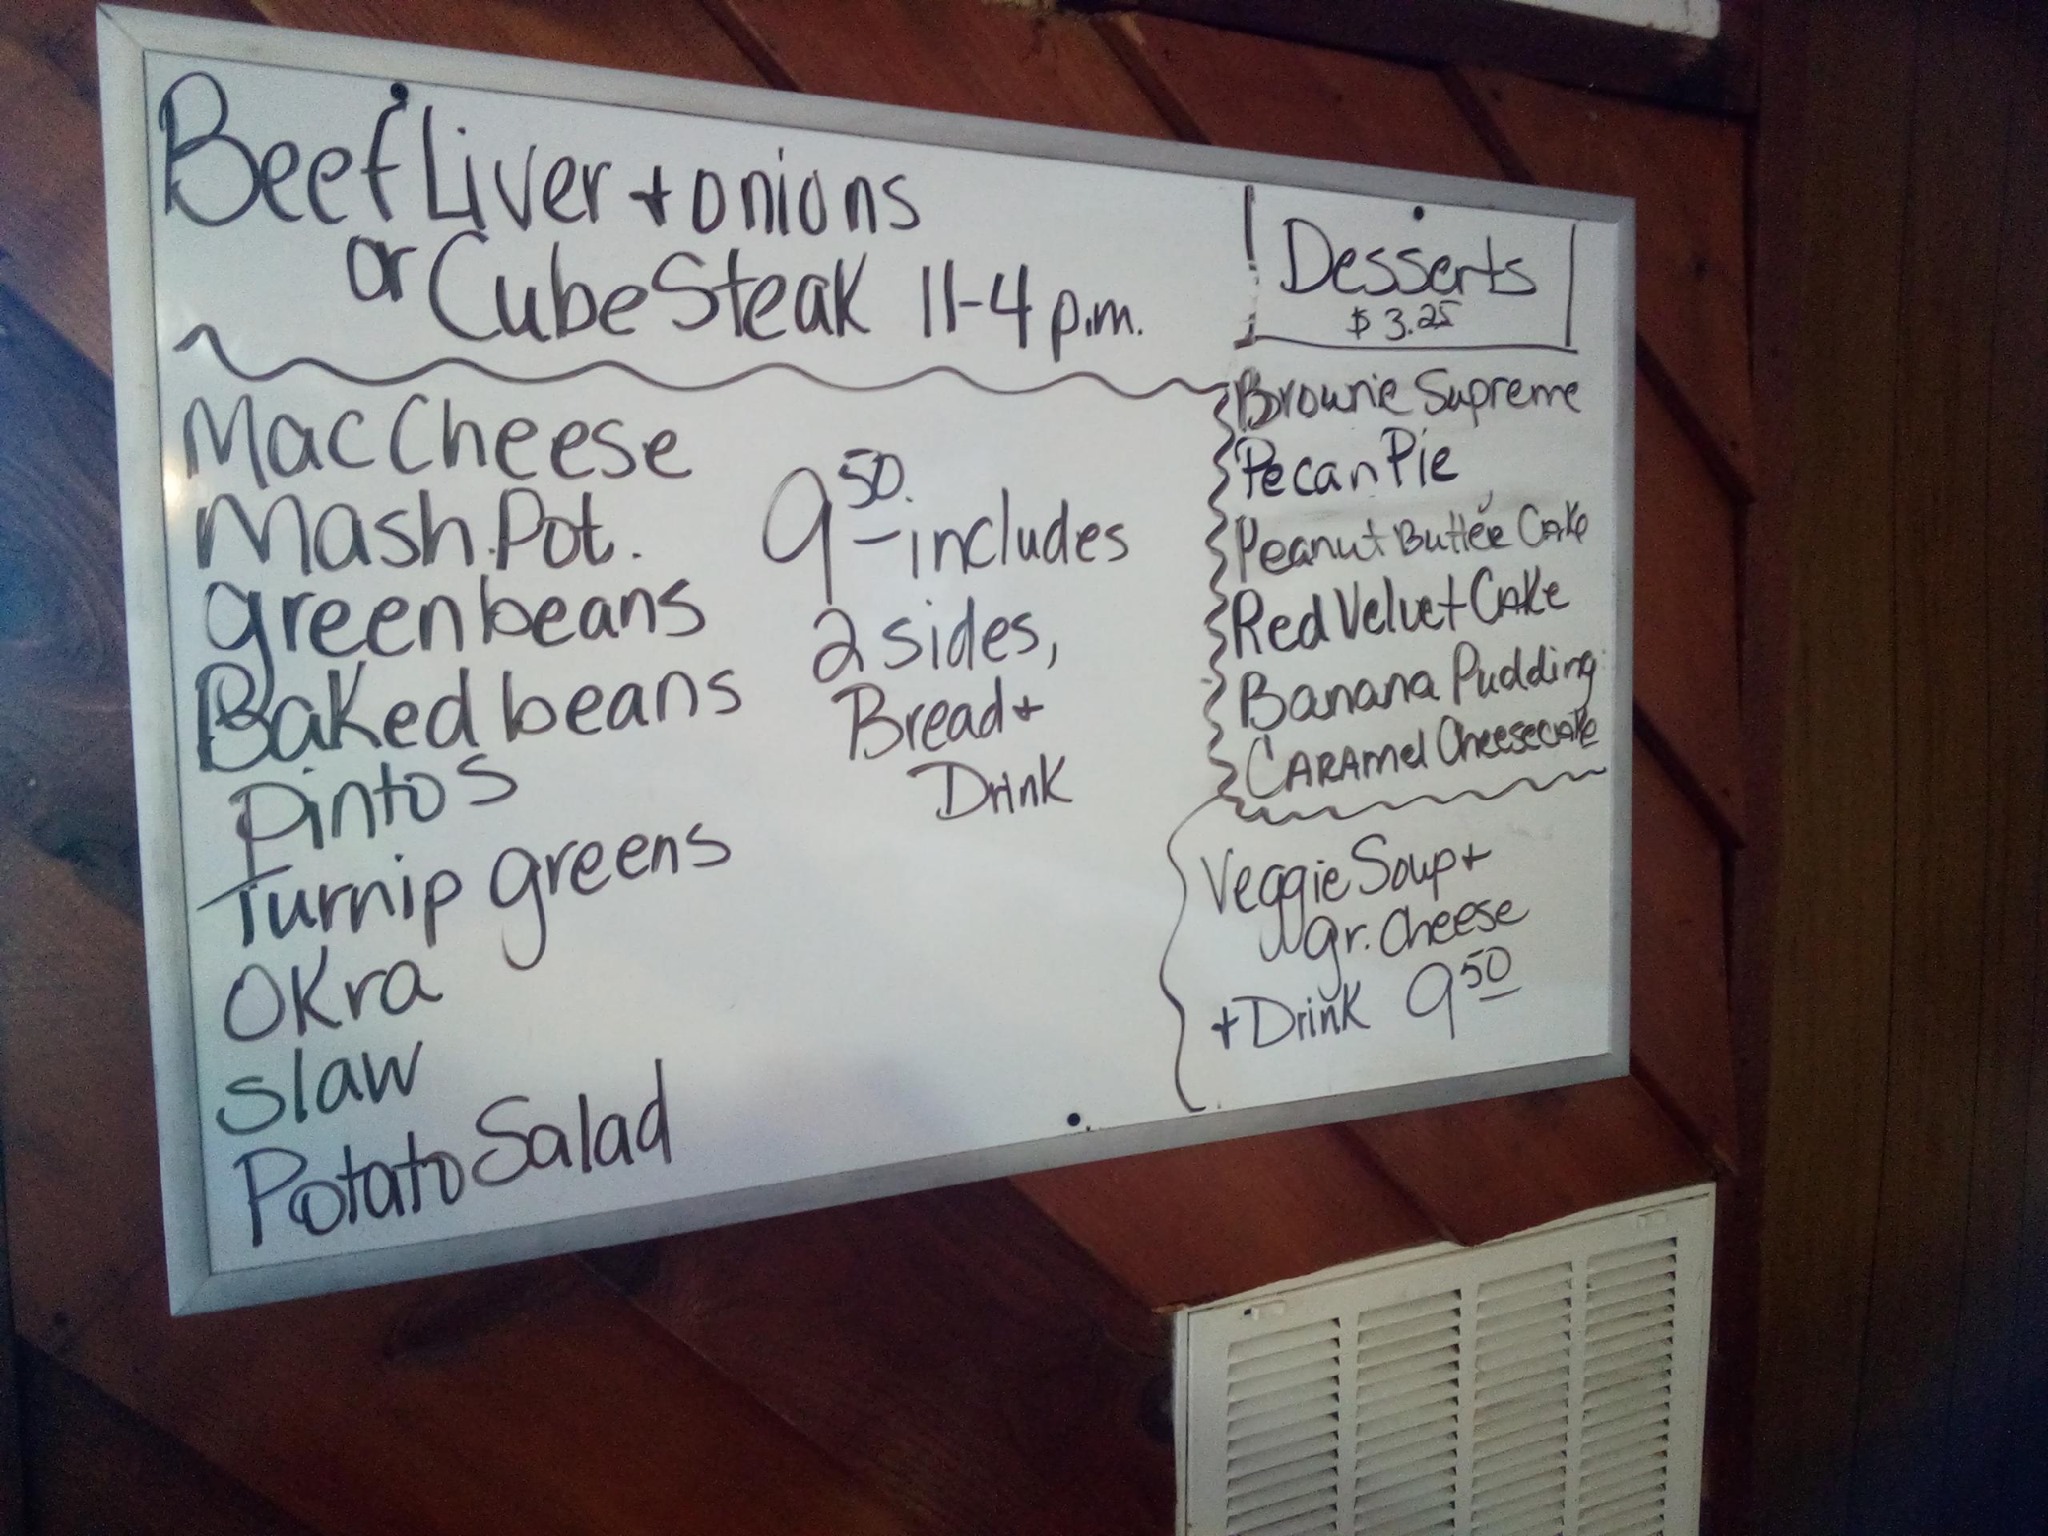 Beef Liver + onions
or Cube Steak 11-4 p.m.
Mac Cheese
Mash. Pot.
green beans
Baked beans
Pintos
Turnip greens
Okra
Slaw
Potato Salad
9 50. - includes
2 sides,
Bread +
Drink
Desserts
$ 3.25
Brownie Supreme
Pecan Pie
Peanut Butter Cake
Red Velvet Cake
Banana Pudding
CARAMel Cheesecake
Veggie Soup +
gr. Cheese
+ Drink 9 50